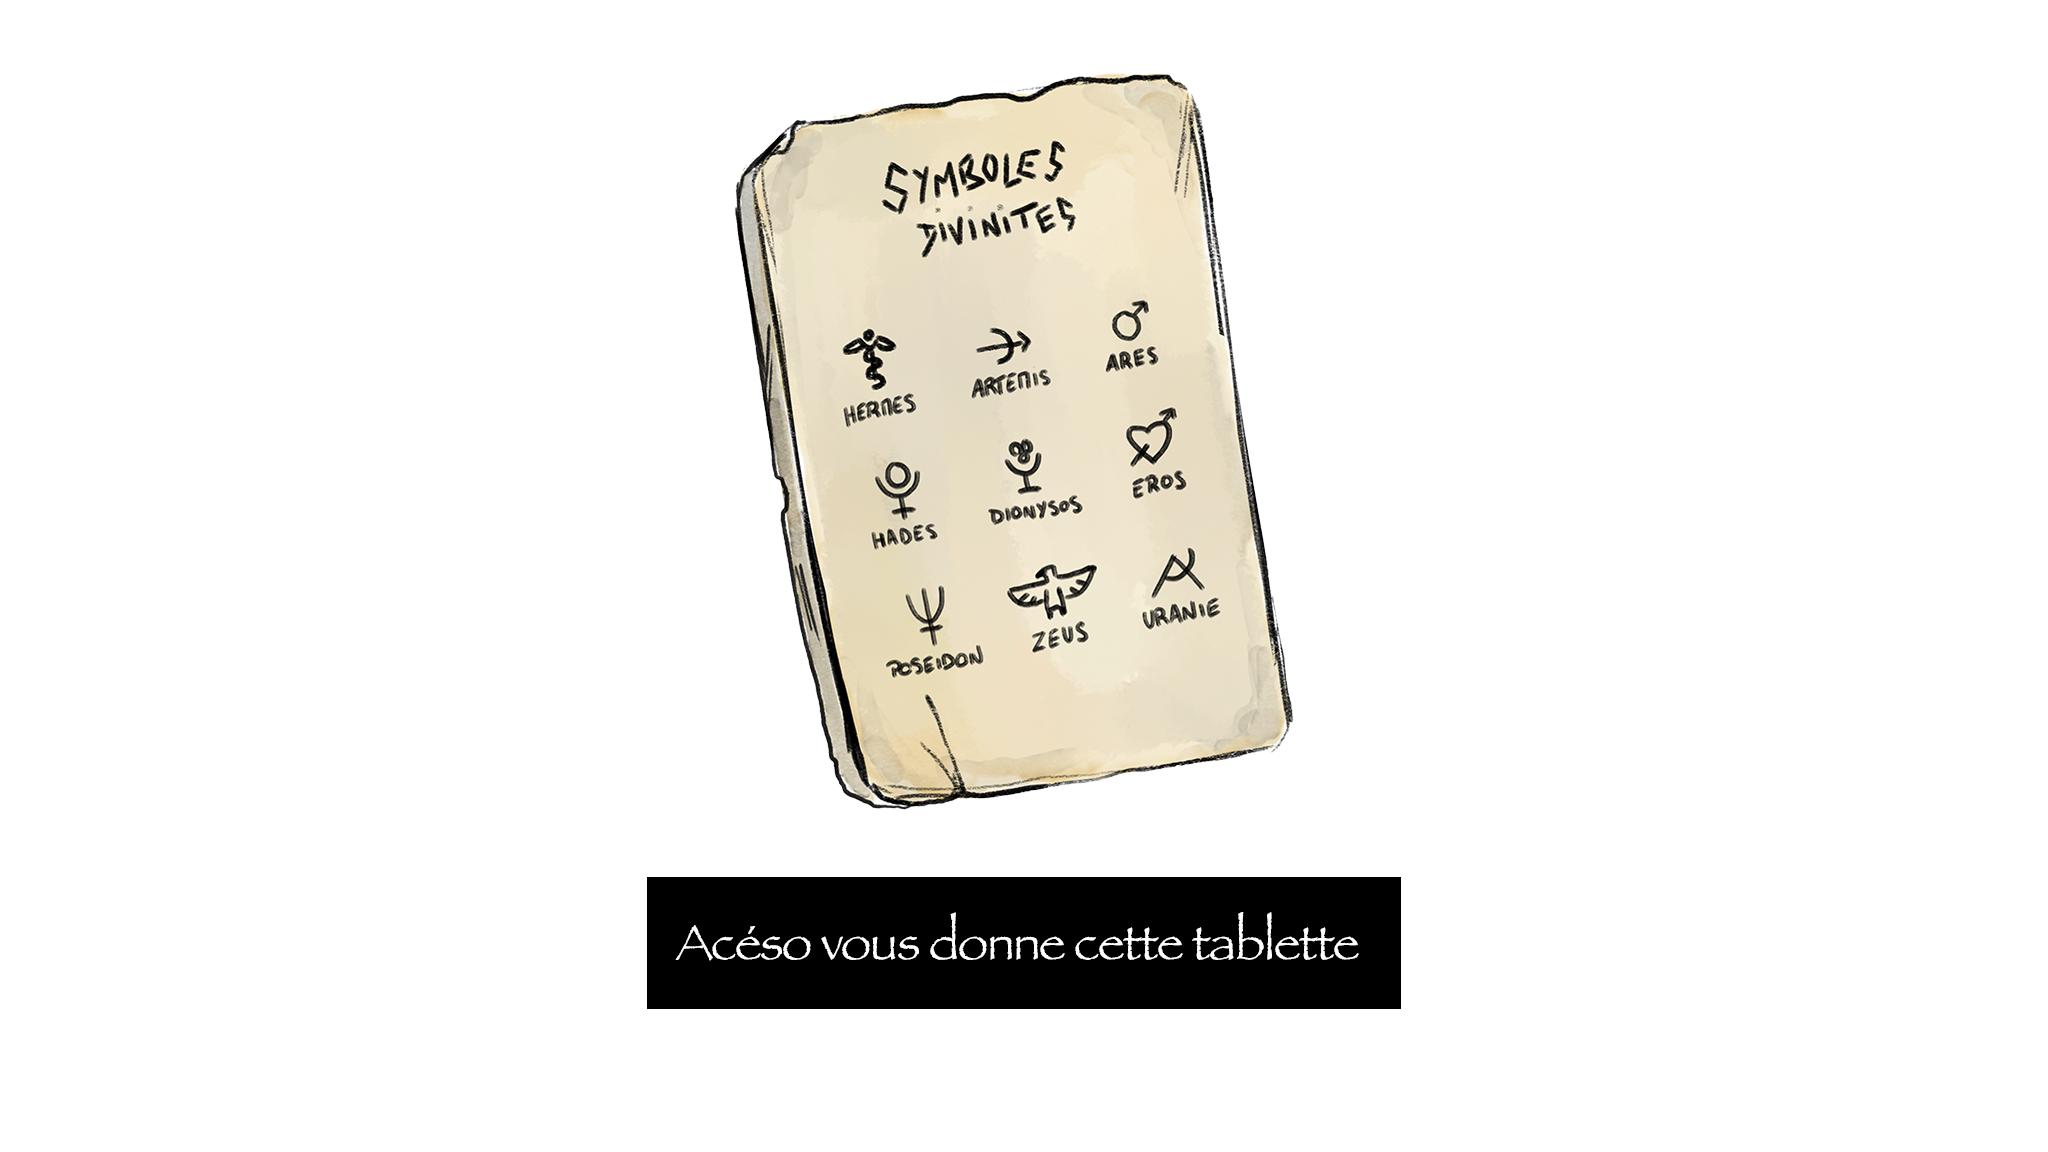 SYMBOLES
DIVINITES
HERMES ARTEMIS ARES
HADES DIONYSOS EROS
POSEIDON ZEUS URANIE
Acéso vous donne cette tablette